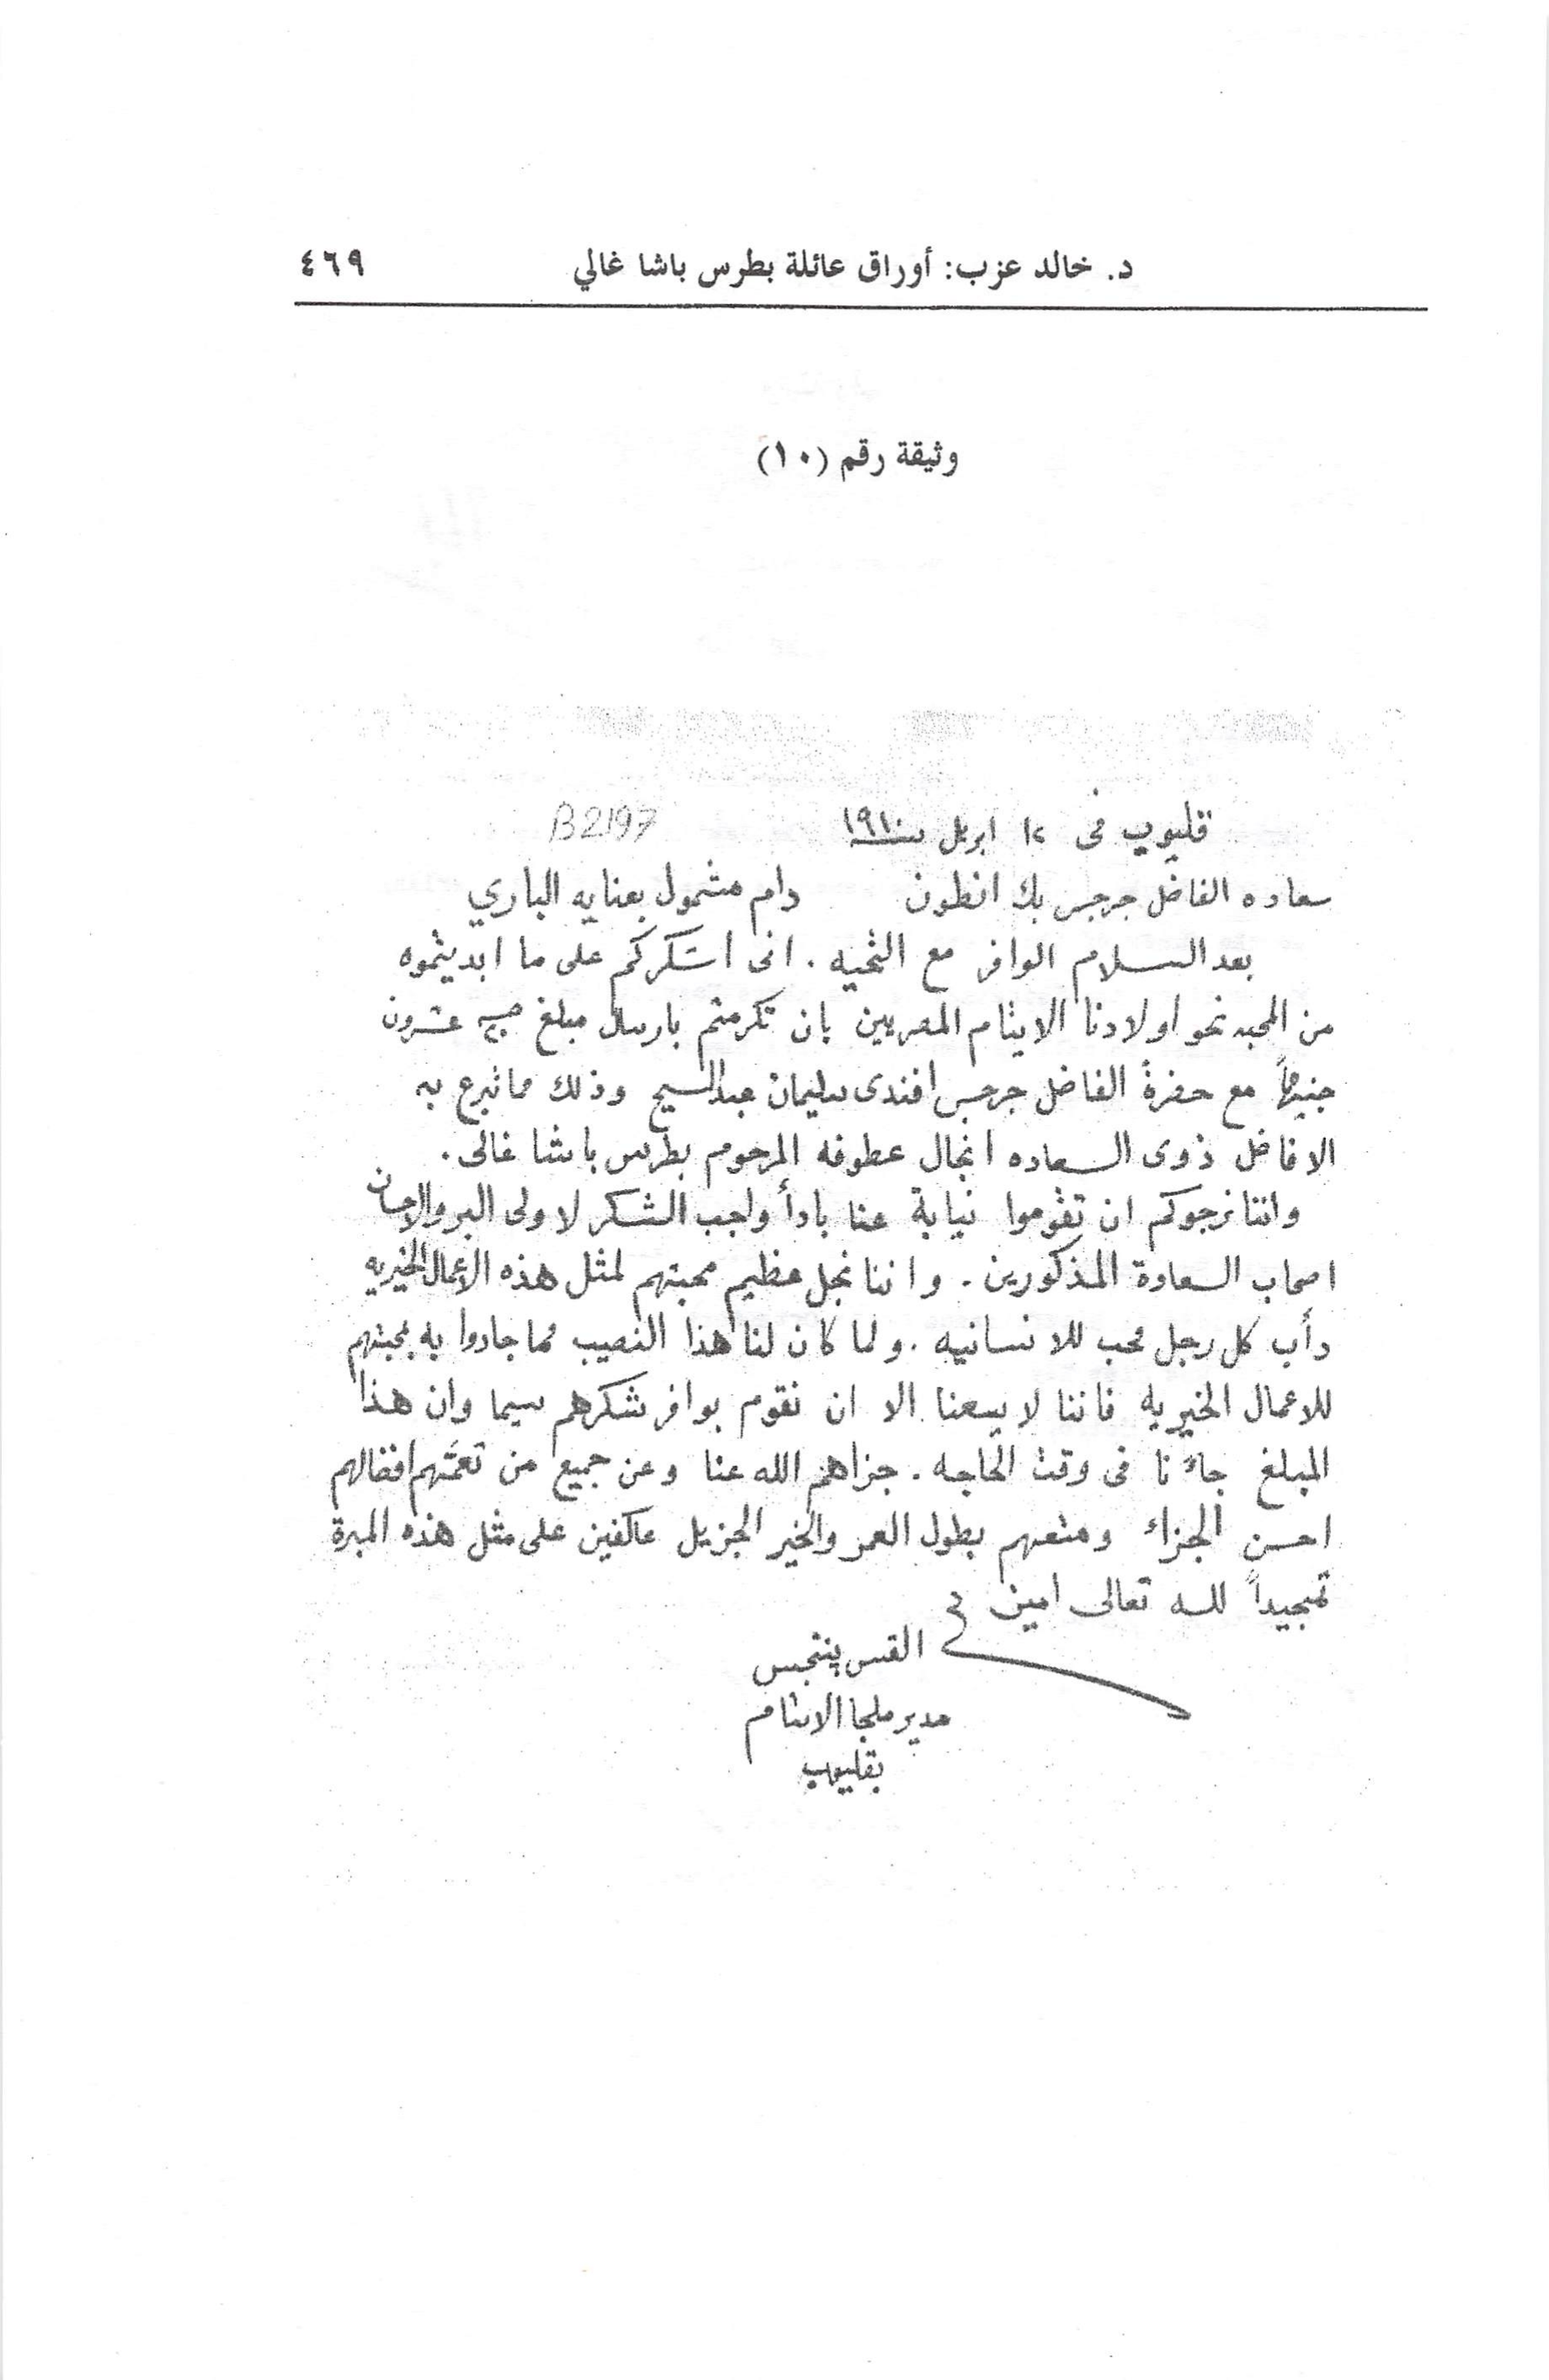 د. خالد عزب: أوراق عائلة بطرس باشا غالي ٤٦٩
وثيقة رقم (١٠)
B2197
قليوب فى ١٢ ابريل سنة ١٩١٠
سعاده الفاضل جرجس بك انطون دام مشمول بعنايه الباري
بعد السلام الوافر مع التحيه . انى اشكركم على ما ابديتموه
من المحبه نحو اولادنا الايتام المصريين بان تكرمتم بارسال مبلغ عشرون
جنيهاً مع حضرة الفاضل جرجس افندى سليمان عبد المسيح وذلك مما تبرع به
الافاضل ذوى السعاده انجال عطوفه المرحوم بطرس باشا غالى .
واننا نرجوكم ان تقوموا نيابة عنا بادأ واجب الشكر لاولى البر والاحسان
اصحاب السعادة المذكورين . واننا نجل عظيم محبتهم لمثل هذه الاعمال الخيريه
دأب كل رجل محب للانسانيه . ولما كان لنا هذا النصيب مما جادوا به بمحبتهم
للاعمال الخيريه فاننا لا يسعنا الا ان نقوم بوافر شكرهم سيما وان هذا
المبلغ جاءنا فى وقت الحاجه . جزاهم الله عنا وعن جميع من تعمهم افضالهم
احسن الجزاء ومتعهم بطول العمر والخير الجزيل عاكفين على مثل هذه المبرة
تمجيداً لله تعالى امين
القس
مدير ملجا الايتام
بقليوب